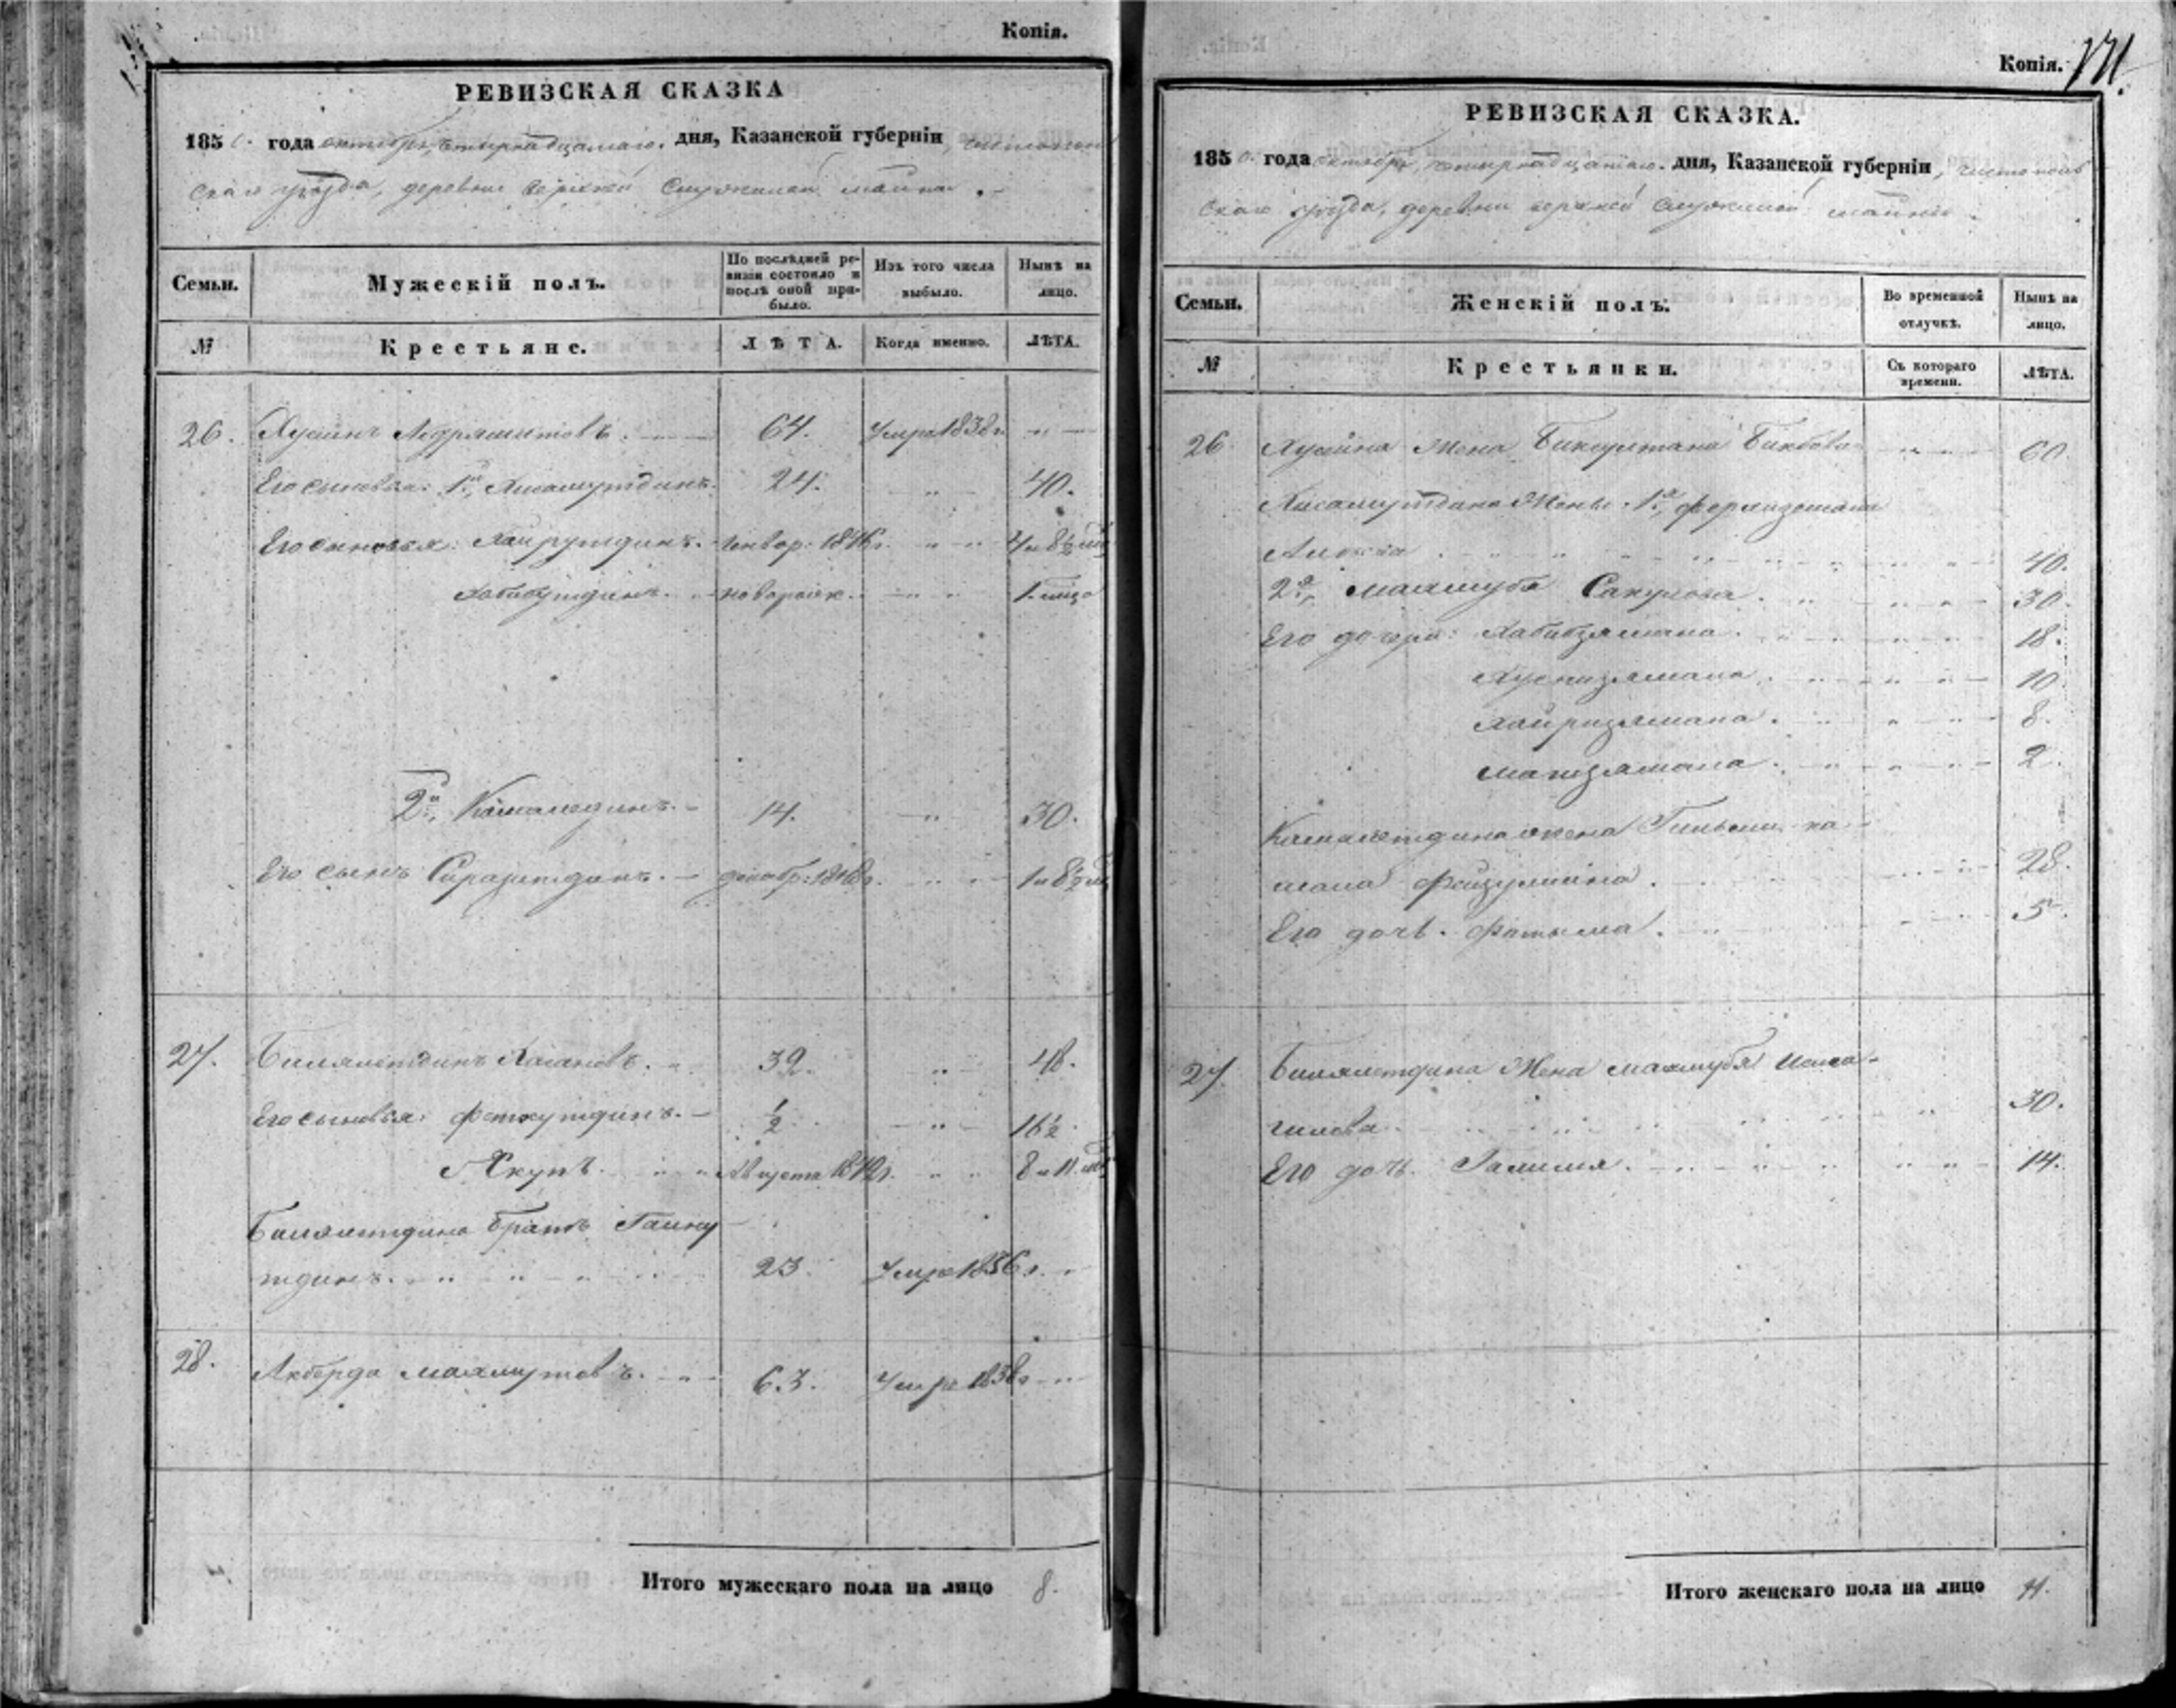 Копія.
РЕВИЗСКАЯ СКАЗКА
1850 года октября, четырнадцатаго. дня, Казанской губерніи, чистополь
скаго уѣзда, деревни верхней Служилой майны.
Семьи.
Мужескій полъ.
По послѣдней ре-
визіи состояло и
послѣ оной при-
было.
Изъ того числа
выбыло.
Нынѣ на
лицо.
№
Крестьяне.
ЛѢТА.
Когда именно.
ЛѢТА.
26. Хусаинъ 64. Умре 1838 г.
Его сыновья: 1й, Хисамутдинъ. 24. 40.
Его сыновья: Хайрутдинъ. Генвар: 1846 г. 4 и 8½ мѣ
Хабибутдинъ. новорожд. 1. мѣца
2й, Камалетдинъ. 14. 30.
Его сынъ Сиразитдинъ. декабр: 1848 г. 1 и 8½ мѣ
27. Билялетдинъ Хасановъ. 32. 48.
Его сыновья: Фатхутдинъ. ½ 16½
Якупъ. Августа 1842 г. 8 и 11. мѣ
Билялетдина братъ Гайну-
тдинъ. 23. Умре 1836 г.
28. Акберда Махмутовъ. 63. Умре 1838 г.
Итого мужескаго пола на лицо 8.
Копія. 171.
РЕВИЗСКАЯ СКАЗКА.
1850 года октября, четырнадцатаго. дня, Казанской губерніи, чистополь
скаго уѣзда, деревни верхней Служилой майны.
Семьи.
Женскій полъ.
Во временной
отлучкѣ.
Нынѣ на
лицо.
№
Крестьянки.
Съ котораго
времени.
ЛѢТА.
26. Хусаина Жена Биксултана 60.
Хисамутдина Жены. 1я,
40.
2я, Махмубя 30.
Его дочери: Хабибзямана. 18.
Хуснизямана. 10.
Хайризямана. 8.
Магизямана. 2.
Камалетдина жена
Фейзуллина. 28.
Его дочь. Фатыма. 5.
27. Билялетдина Жена Махмубя Исма-
гилова. 30.
Его дочь. Галимя. 14.
Итого женскаго пола на лицо 11.